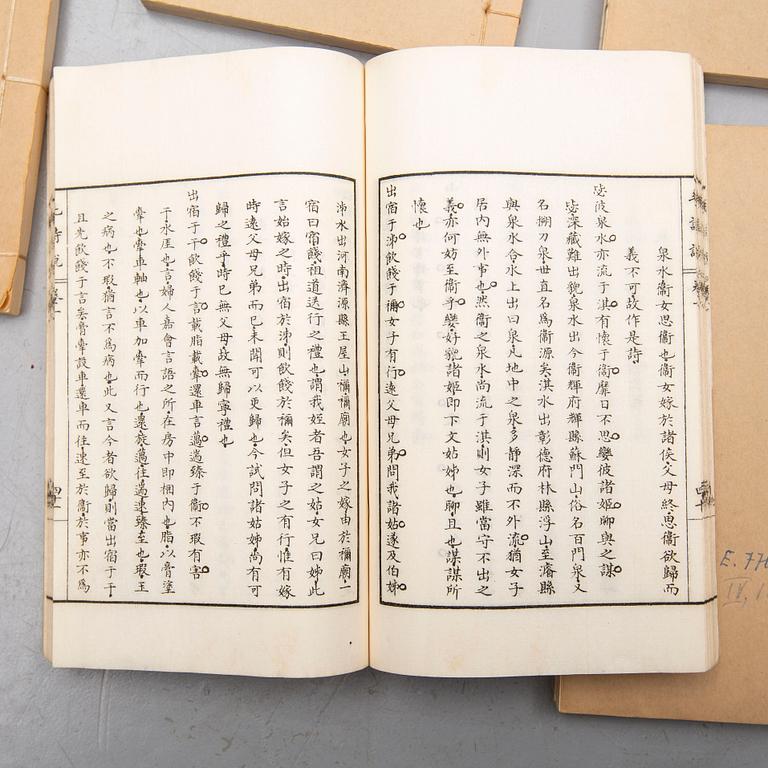 泉水衞女思衞也衞女嫁於諸侯父母終思衞欲歸而
義不可故作是詩
毖彼泉水亦流于淇有懷于衞靡日不思孌彼諸姬聊與之謀
毖深藏難出貌泉水出今衞輝府輝縣蘇門山俗名百門泉又
名搠刀泉毋直名爲衞源矣淇水出彰德府林縣浮山至濬縣
與泉水合水上出曰泉凡地中之泉多靜深而不外流猶女子
居內無外事也然衞之泉水尚流于淇則女子雖當守不出之
義亦何妨至衞乎孌好貌諸姬卽下文姑姊也聊且也謀謀所
懷也
出宿于泲飮餞于禰女子有行遠父母兄弟問我諸姑遂及伯姊
泲水出河南濟源縣王屋山禰禰廟也女子之嫁由於禰廟一
宿曰宿餞祖道送行之禮也謂我姪者吾謂之姑女兄曰姊此
言始嫁之時出宿於泲則飮餞於禰矣但女子之有行惟有嫁
時遠父母兄弟而已未聞可以更歸也今試問諸姑姊尙有可
歸之禮乎時已無父母故無歸寧禮也
出宿于干飮餞于言載脂載舝還車言邁遄臻于衞不瑕有害
干水厓也言婦人嘉會言語之所在房中卽梱內也脂以膏塗
舝也舝車軸也以車加舝而行也還旋邁往遄速臻至也瑕玉
之病也不瑕猶言不爲病也此又言今者欲歸則當出宿于干
且先飮餞于言矣膏舝設車還車而往速至於衞於事亦不爲
E. 77
IV, 1